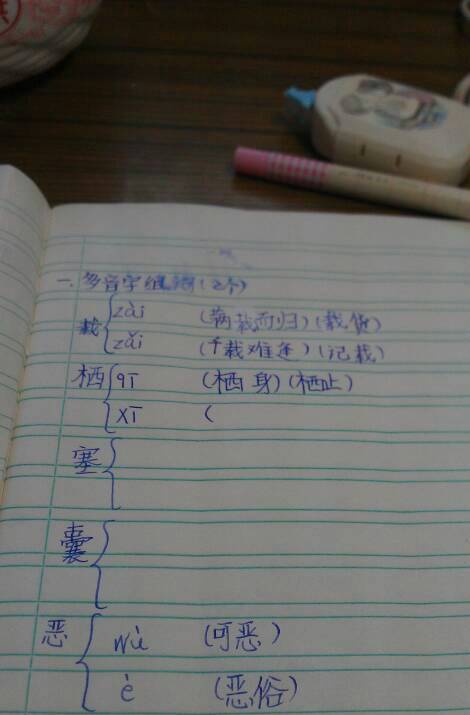 一. 多音字组词(2个)
载 zài (满载而归)(载货)
zǎi (千载难逢)(记载)
栖 qī (栖身)(栖止)
xī (
塞
囊
恶 wù (可恶)
è (恶俗)